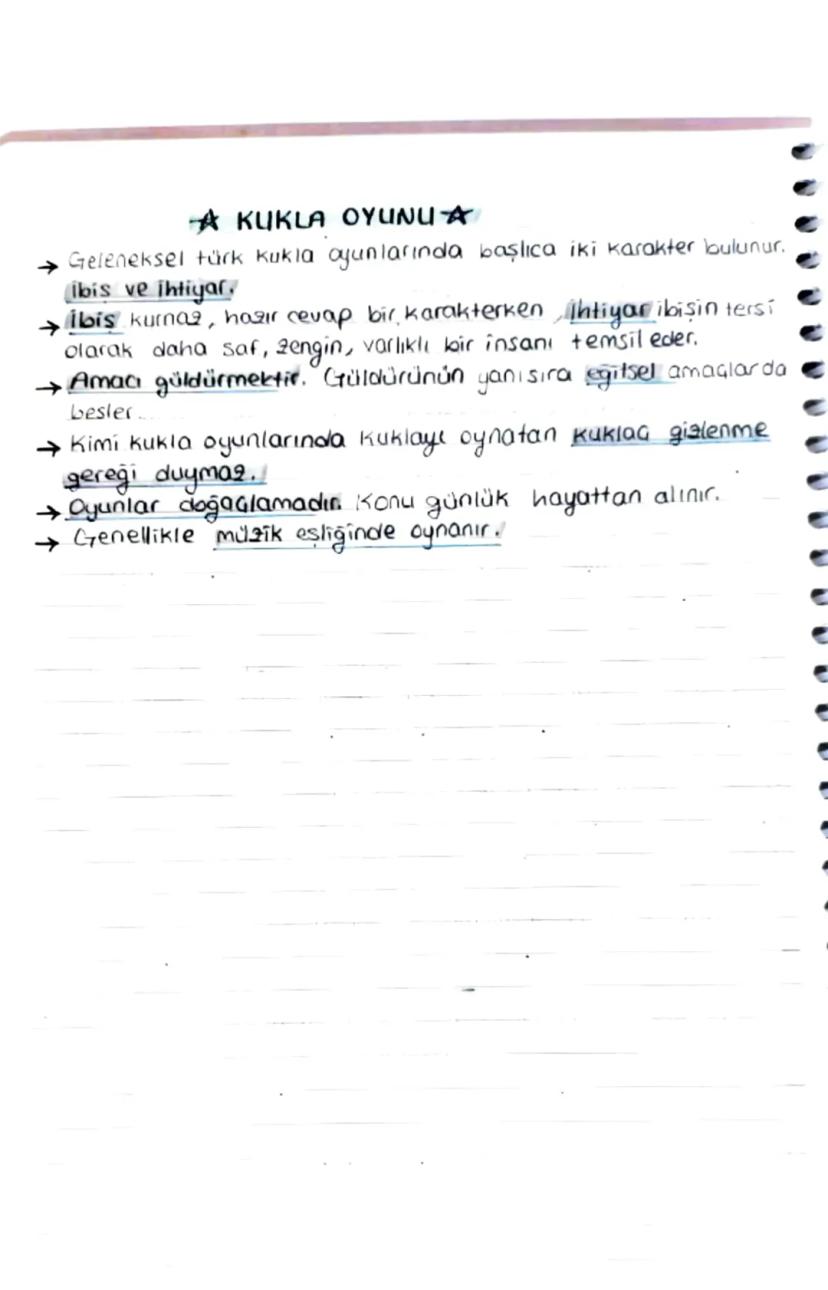 ☆ KUKLA OYUNU ☆
→ Geleneksel türk kukla oyunlarında başlıca iki karakter bulunur.
ibiş ve ihtiyar.
→ İbiş kurnaz, hazır cevap bir karakterken, ihtiyar ibişin tersi
olarak daha saf, zengin, varlıklı bir insanı temsil eder.
→ Amacı güldürmektir. Güldürünün yanısıra eğitsel amaçlarda
besler.
→ Kimi kukla oyunlarında kuklayı oynatan kuklacı gizlenme
gereği duymaz.
→ Oyunlar doğaçlamadır. Konu günlük hayattan alınır.
→ Genellikle müzik eşliğinde oynanır.